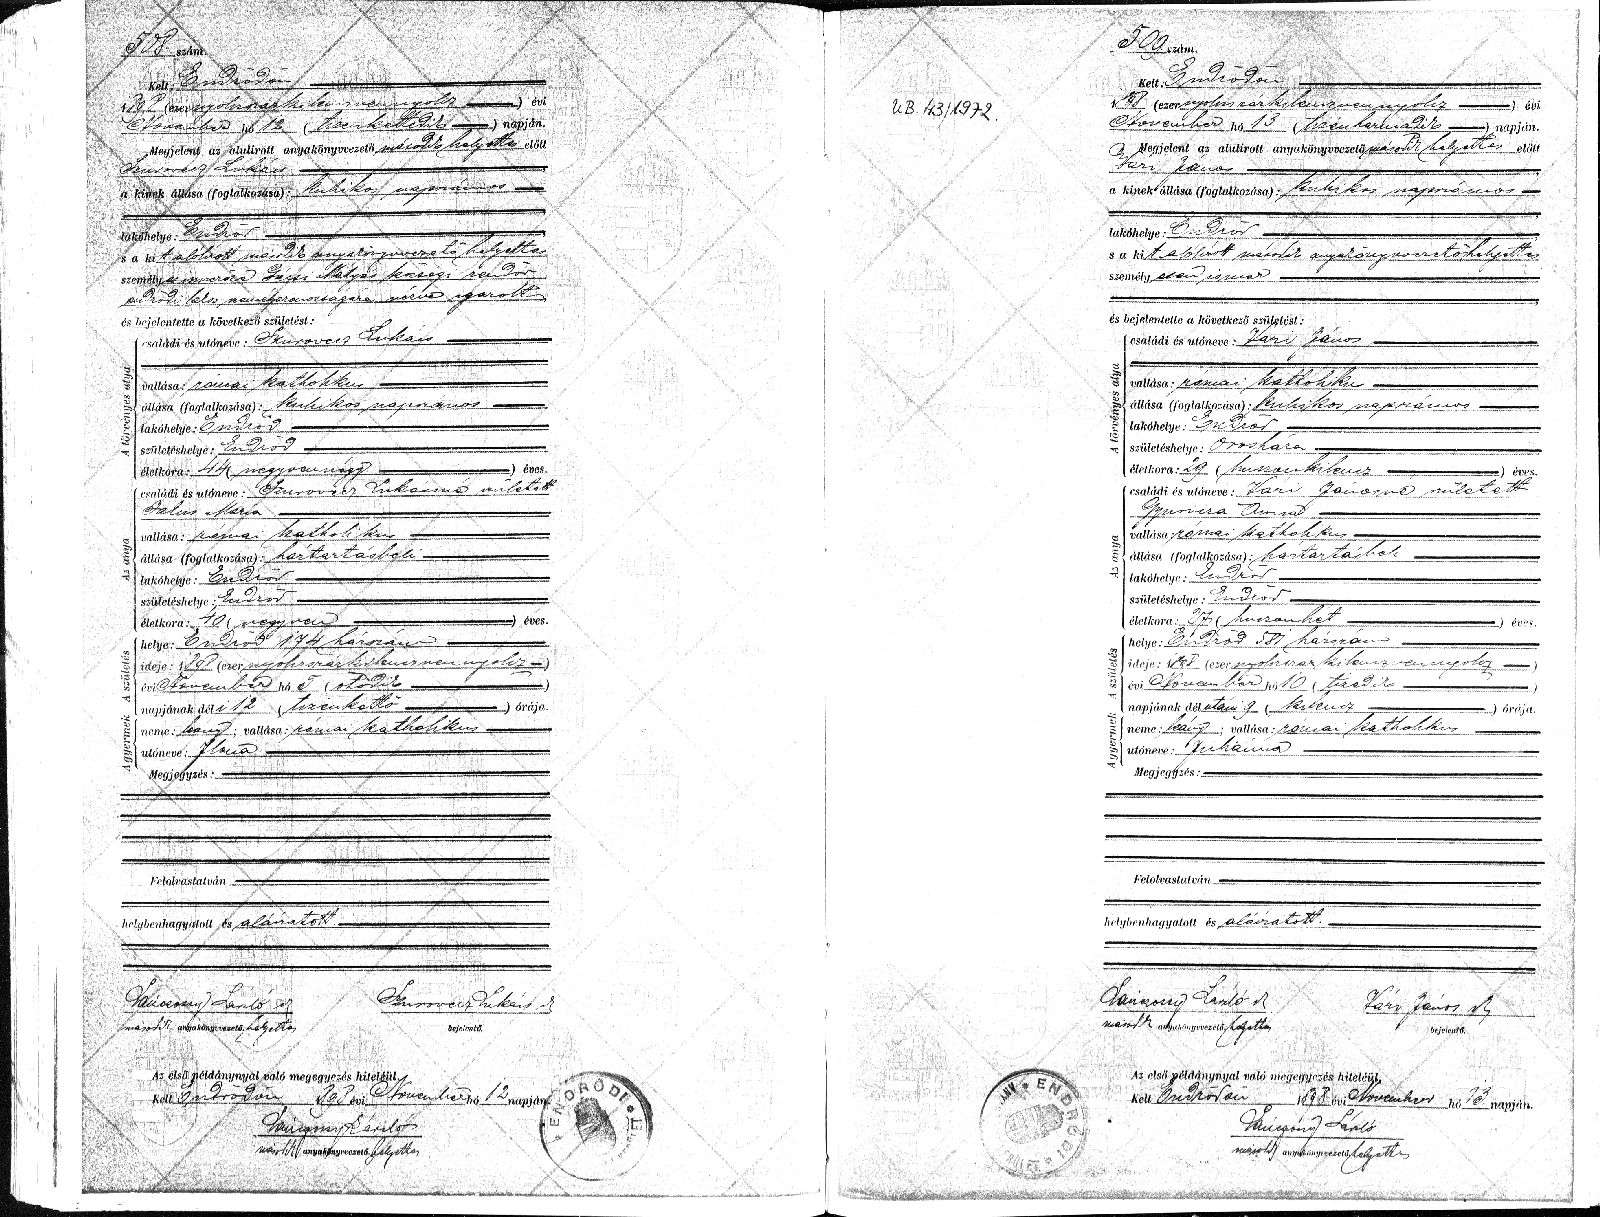 508 szám.
Kelt: Endrődön
1898 (ezer nyolczszázkilenczvennyolcz) évi
November hó 12 (tizenkettedik) napján.
Megjelent az alulirott anyakönyvvezető második helyettes előtt
Szurovecz Lukács
a kinek állása (foglalkozása): kubikos napszámos
lakóhelye: Endrőd
s a kit alólirott második anyakönyvvezető helyettes
személyesen Mátyás községi rendőr
endrődi lakos
és bejelentette a következő születést:
A törvényes atya
családi és utóneve: Szurovecz Lukács
vallása: római katholikus
állása (foglalkozása): kubikos napszámos
lakóhelye: Endrőd
születéshelye: Endrőd
életkora: 44 (negyvennégy) éves.
Az anya
családi és utóneve: Szurovecz Lukácsné született
Mária
vallása: római katholikus
állása (foglalkozása): háztartásbeli
lakóhelye: Endrőd
születéshelye: Endrőd
életkora: 40 (negyven) éves.
A születés
helye: Endrőd 174 házszám
ideje: 1898 (ezer nyolczszázkilenczvennyolcz)
évi November hó 5 (ötödik)
napjának dél i 12 (tizenkettő) órája.
A gyermek
neme: leány; vallása: római katholikus
utóneve: Ilona
Megjegyzés:
Felolvastatván
helybenhagyatott és aláiratott
László
második anyakönyvvezető helyettes
Szurovecz Lukács
bejelentő.
Az első példánynyal való megegyezés hiteléül.
Kelt Endrődön 1898 évi November hó 12 napján.
László
második anyakönyvvezető helyettes
ENDRŐDI
UB. 43/1972.
509 szám.
Kelt: Endrődön
1898 (ezer nyolczszázkilenczvennyolcz) évi
November hó 13 (tizenharmadik) napján.
Megjelent az alulirott anyakönyvvezető második helyettes előtt
Vári János
a kinek állása (foglalkozása): kubikos napszámos
lakóhelye: Endrőd
s a kit alólirott második anyakönyvvezetőhelyettes
személyesen ismer
és bejelentette a következő születést:
A törvényes atya
családi és utóneve: Vári János
vallása: római katholikus
állása (foglalkozása): kubikos napszámos
lakóhelye: Endrőd
születéshelye: Orosháza
életkora: 29 (huszonkilencz) éves.
Az anya
családi és utóneve: Vári Jánosné született
Gyuricza
vallása: római katholikus
állása (foglalkozása): háztartásbeli
lakóhelye: Endrőd
születéshelye: Endrőd
életkora: 27 (huszonhet) éves.
A születés
helye: Endrőd házszám
ideje: 1898 (ezer nyolczszázkilenczvennyolcz)
évi November hó 10 (tizedik)
napjának dél után 9 (kilencz) órája.
A gyermek
neme: leány; vallása: római katholikus
utóneve: Julianna
Megjegyzés:
Felolvastatván
helybenhagyatott és aláiratott.
László
második anyakönyvvezető helyettes
Vári János
bejelentő.
Az első példánynyal való megegyezés hiteléül.
Kelt Endrődön 1898 évi November hó 13 napján.
László
második anyakönyvvezető helyettes